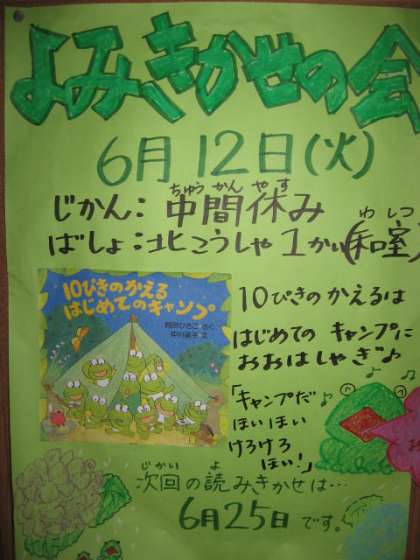 よみきかせの会
6月12日(火)
ちゅうかんやす
じかん：中間休み
わしつ
ばしょ：北こうしゃ1かい(和室)
10ぴきのかえる
はじめてのキャンプ
10ぴきのかえるは
はじめてのキャンプに
おおはしゃぎ♪
「キャンプだ♪
ほいほい
けろけろ
ほい！」
じかい よ
次回の読みきかせは…
6月25日です。